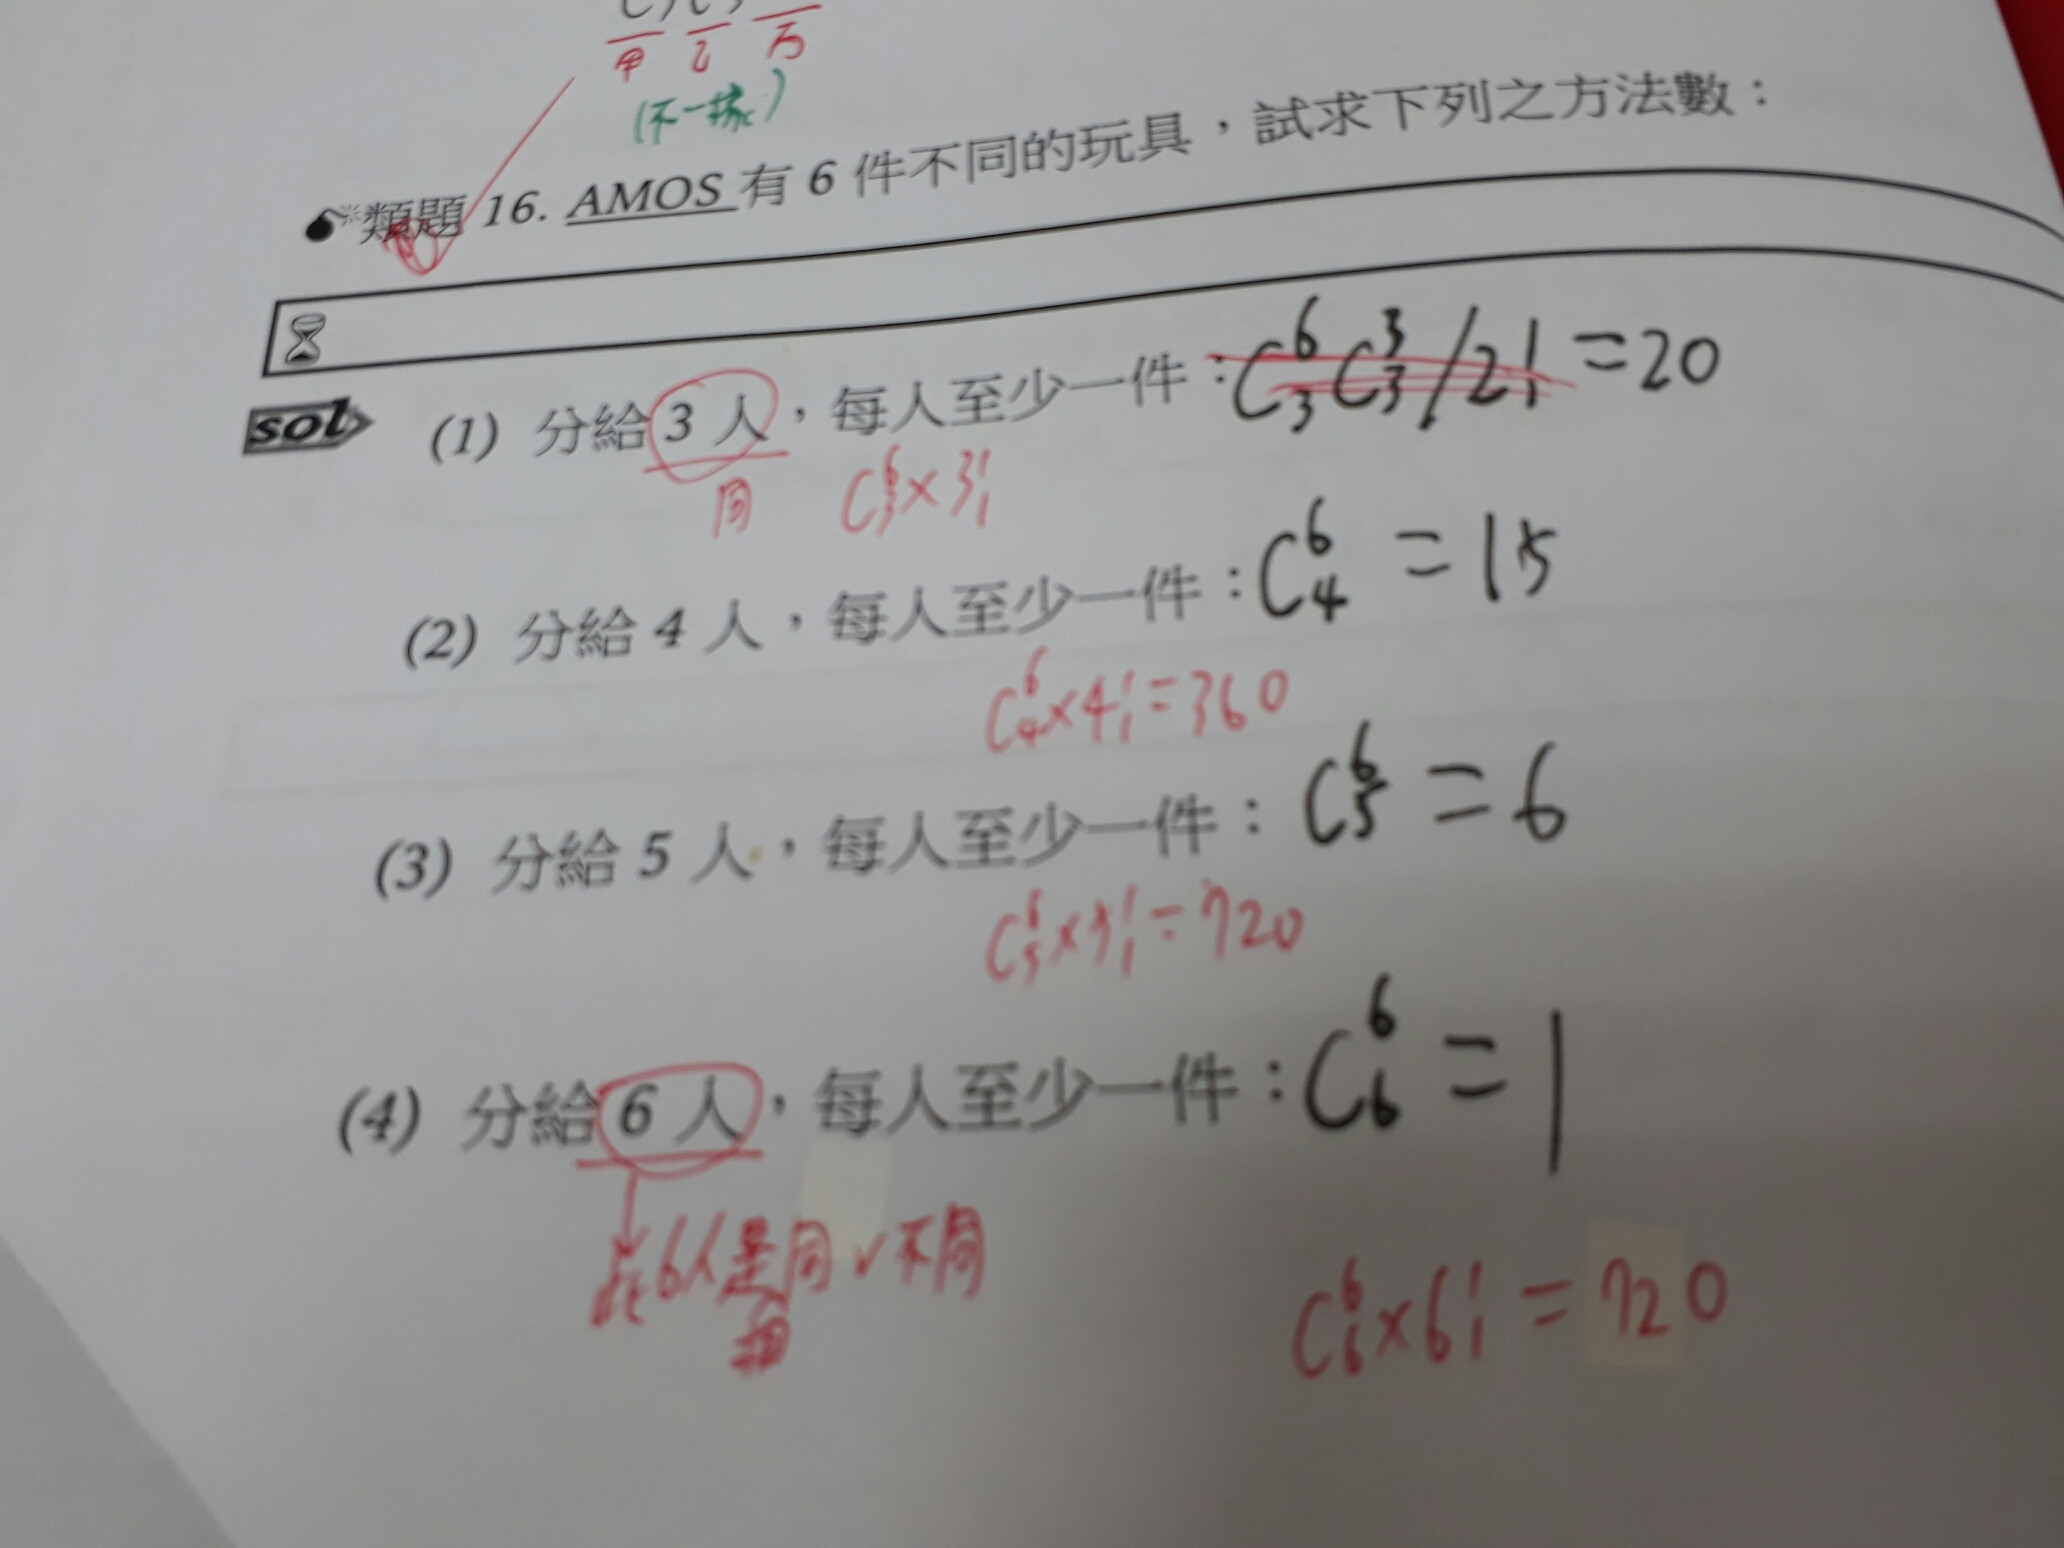 甲 乙 丙
(不一樣)
類題 16. AMOS 有 6 件不同的玩具，試求下列之方法數：
sol (1) 分給 3 人，每人至少一件：C⁶₃C³₃/2! =20
同 C⁶₃×3!
(2) 分給 4 人，每人至少一件：C⁶₄ =15
C⁶₄×4!=360
(3) 分給 5 人，每人至少一件：C⁶₅ =6
C⁶₅×5!=720
(4) 分給 6 人，每人至少一件：C⁶₆ =1
此6人是同√不同
C⁶₆×6! =720